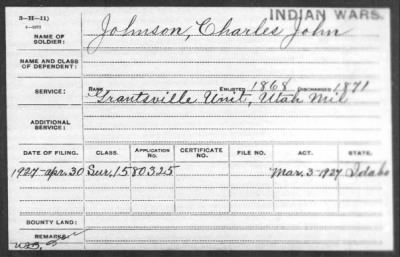 INDIAN WARS.
3-H-11)
NAME OF SOLDIER: Johnson, Charles John
NAME AND CLASS OF DEPENDENT:
SERVICE: RANK ENLISTED 1868 DISCHARGED 1871
Grantsville Unit, Utah Mil
ADDITIONAL SERVICE:
DATE OF FILING. CLASS. APPLICATION NO. CERTIFICATE NO. FILE NO. ACT. STATE.
1927-apr. 30 Sur. 1580325 Mar. 3-1927 Idaho
BOUNTY LAND:
REMARKS: